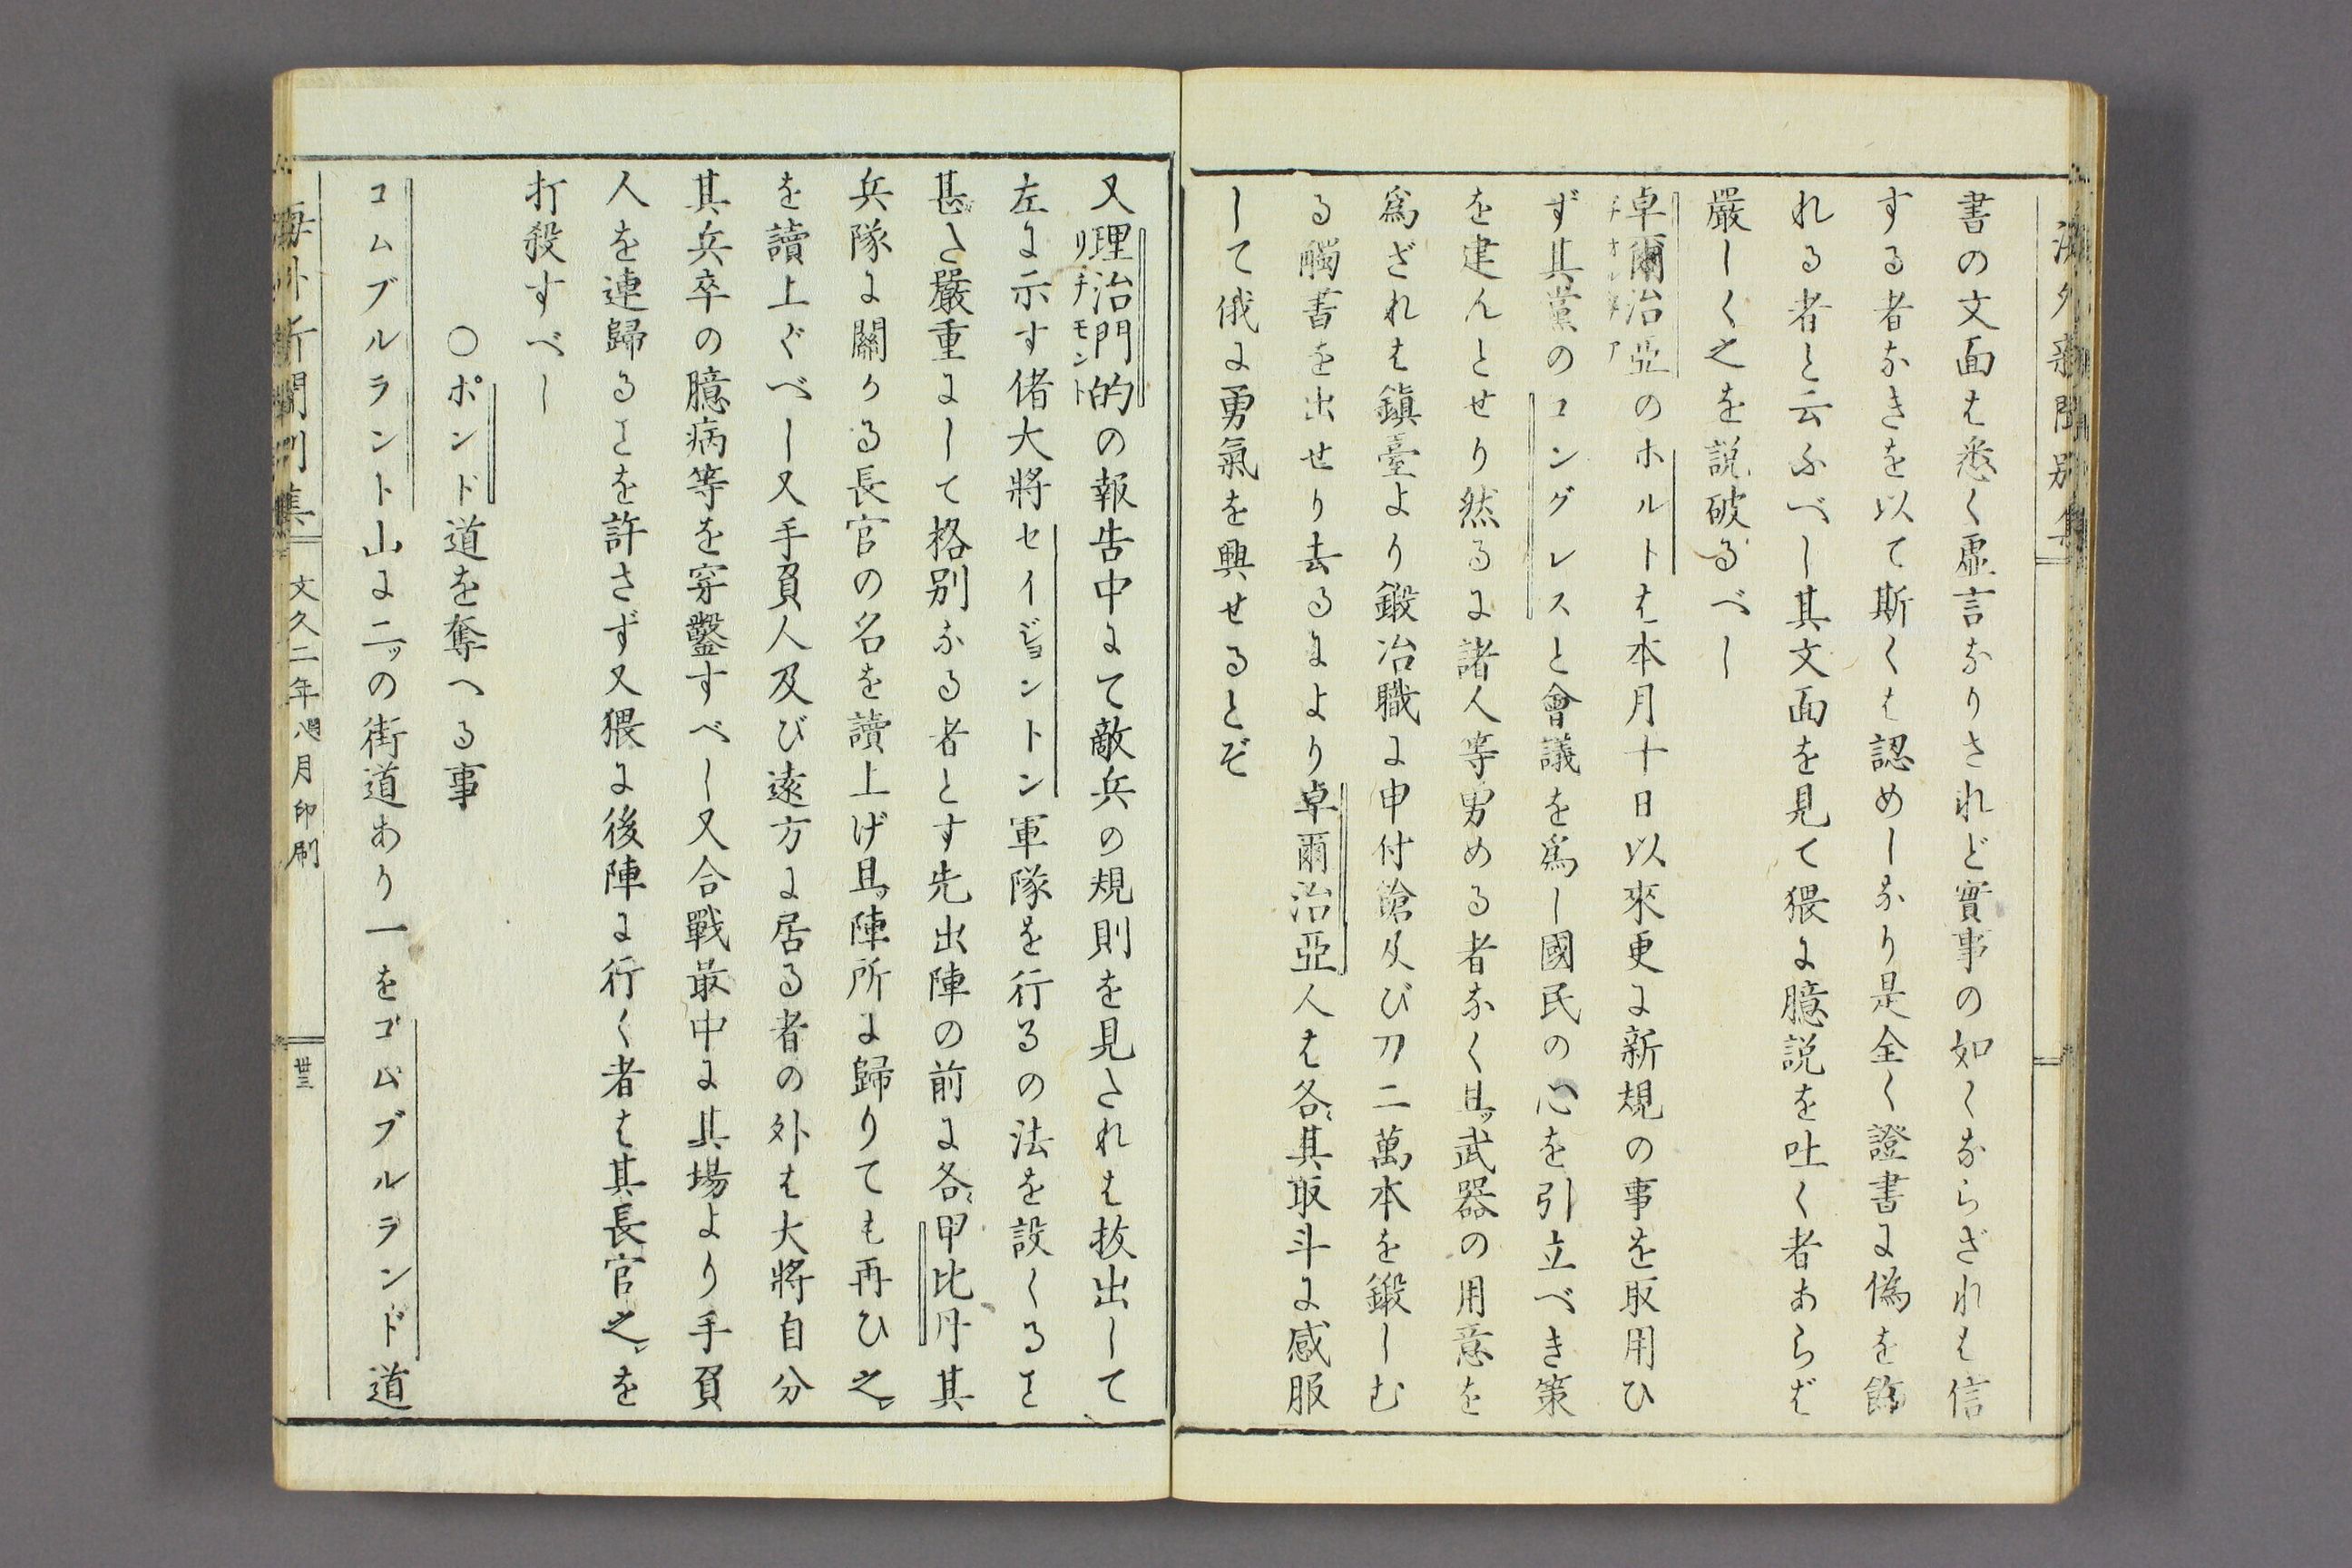 書の文面は悉く虚言なりされど實事の如くならざれは信
する者なきを以て斯くは認めしなり是全く證書に僞を飾
れる者と云ふべし其文面を見て猥に臆説を吐く者あらば
嚴しく之を説破るべし
卓爾治亞のホルトは本月十日以來更に新規の事を取用ひ
ず其黨のコングレスと會議を爲し國民の心を引立べき策
を建んとせり然るに諸人等男める者なく且ッ武器の用意を
爲ざれは鎭臺より鍛冶職に申付鎗及び刀二萬本を鍛しむ
る觸書を出せり去るにより卓爾治亞人は各〻其取斗に感服
して俄に勇氣を興せるとぞ
又理治門的の報告中にて敵兵の規則を見たれは抜出して
リチモント
左に示す偖大將セイジョントン軍隊を行るの法を設くるヿ
甚〻た嚴重にして格別なる者とす先出陣の前に各〻甲比丹其
兵隊に關りる長官の名を讀上げ且ッ陣所に歸りても再ひ之レ
を讀上ぐべし又手負人及び遠方に居る者の外は大將自分
其兵卒の臆病等を穿鑿すべし又合戰最中に其場より手負
人を連歸るヿを許さず又猥に後陣に行く者は其長官之レを
打殺すべし
○ポンド道を奪へる事
コムブルラント山に二ッの街道あり一をゴムブルランド道
海外新聞別集
文久二年 八月印刷
卅三